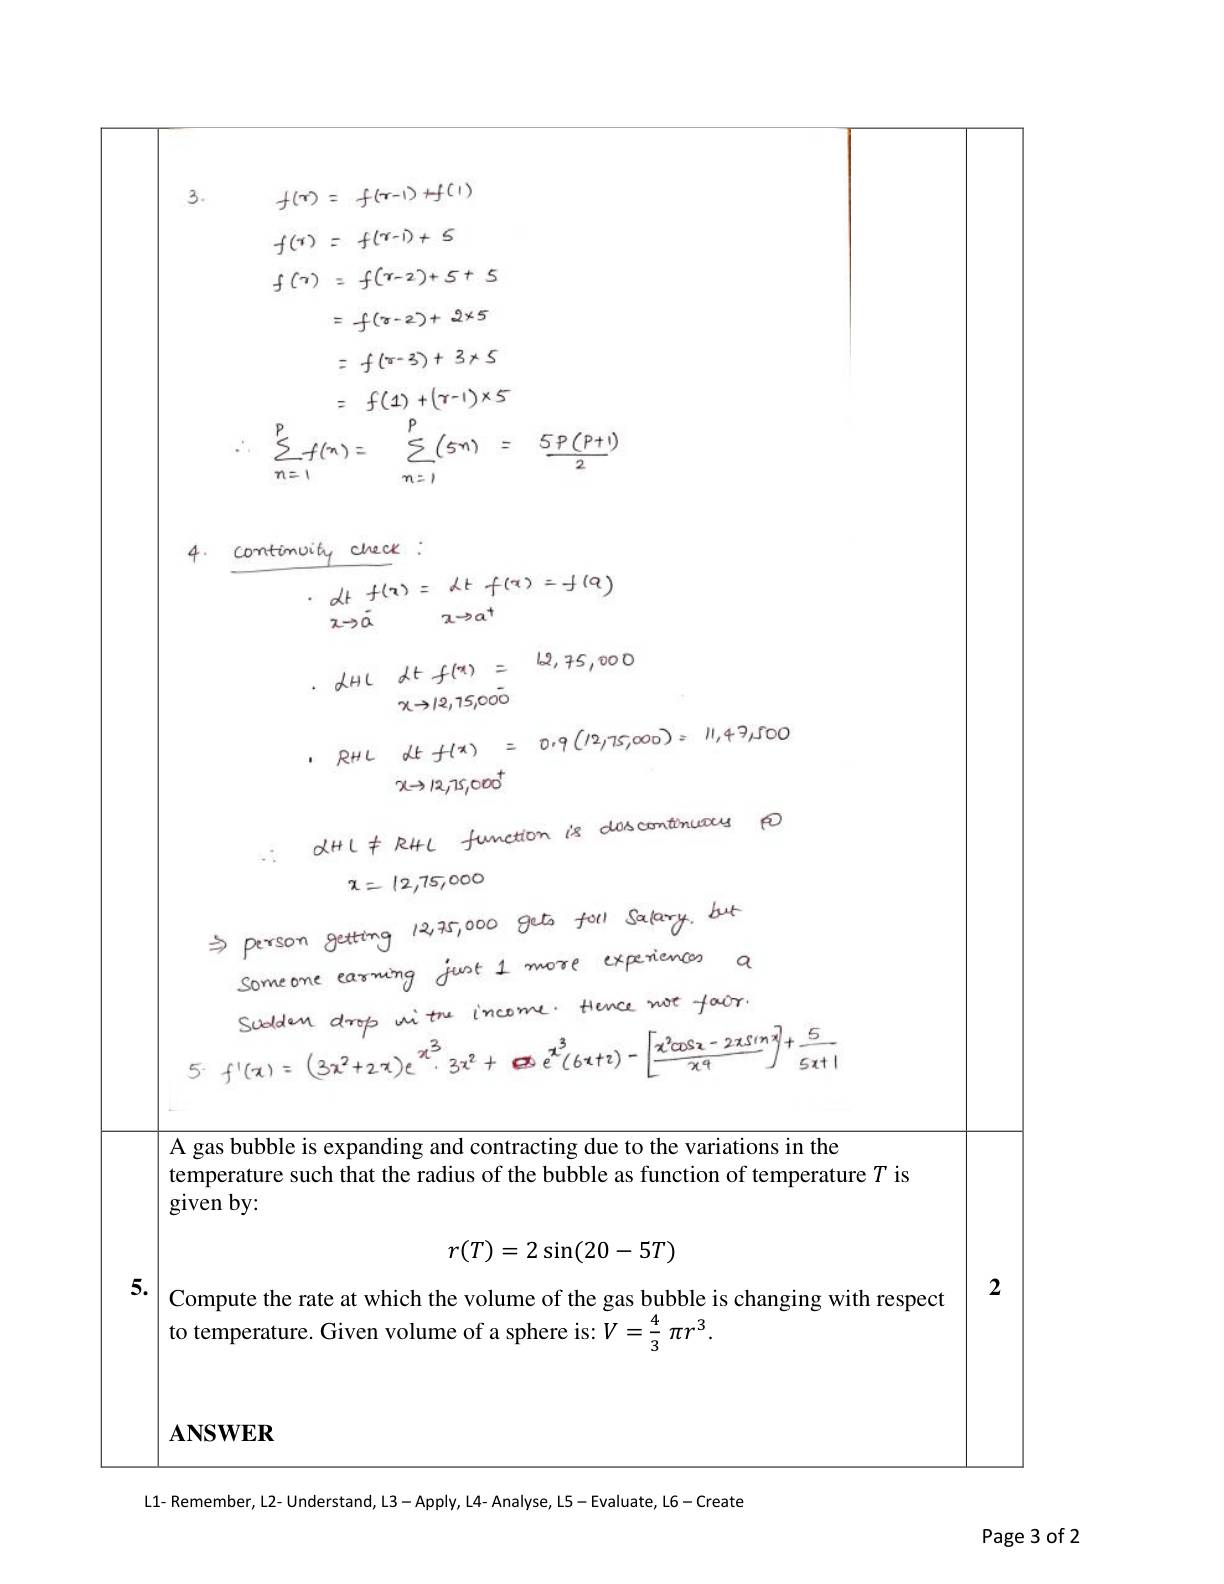 3. f(r) = f(r-1) + f(1)
f(r) = f(r-1) + 5
f(r) = f(r-2) + 5 + 5
= f(r-2) + 2×5
= f(r-3) + 3×5
= f(1) + (r-1)×5
∴ Σ_{n=1}^{P} f(n) = Σ_{n=1}^{P} (5n) = 5P(P+1)/2
4. continuity check :
· Lt x→a⁻ f(x) = Lt x→a⁺ f(x) = f(a)
· LHL Lt x→12,75,000⁻ f(x) = 12,75,000
· RHL Lt x→12,75,000⁺ f(x) = 0.9(12,75,000) = 11,47,500
∴ LHL ≠ RHL function is discontinuous @
x = 12,75,000
⇒ person getting 12,75,000 gets full salary. but
someone earning just 1 more experiences a
sudden drop in the income. Hence not fair.
5. f'(x) = (3x²+2x)e^{x³}. 3x² + e^{x³}(6x+2) - [x²cosx - 2xsinx / x⁴] + 5/5x+1
A gas bubble is expanding and contracting due to the variations in the
temperature such that the radius of the bubble as function of temperature T is
given by:
r(T) = 2 sin(20 − 5T)
5.
2
Compute the rate at which the volume of the gas bubble is changing with respect
to temperature. Given volume of a sphere is: V = 4/3 πr³.
ANSWER
L1- Remember, L2- Understand, L3 – Apply, L4- Analyse, L5 – Evaluate, L6 – Create
Page 3 of 2